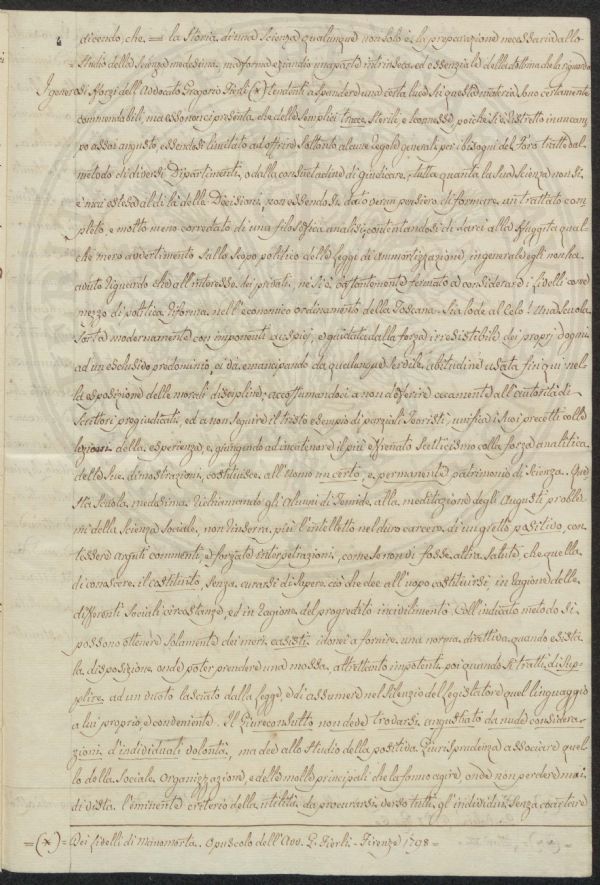 dicendo, che = la Storia di una Scienza qualunque non solo è la preparazione necessaria allo
Studio della Scienza medesima, ma forma eziandio una parte intrinseca, ed essenziale della dottrina che la riguarda
I generosi sforzi dell'Avvocato Gregorio Fierli (*) tendenti a spandere una certa luce su questa materia sono certamente
commendabili, ma essi non ci presenta che delle semplici tracce sterili, e sconnesse, poiché si è ristretto in un cam-
po assai angusto, essendosi limitato ad offrire soltanto alcune regole generali per i bisogni del Foro tratte dal
metodo di diversi Dipartimenti, o dalla consuetudine di giudicare. Tutta quanta la sua Scienza non si
è mai estesa al di là delle Decisioni, non essendosi dato verun pensiero di formare un trattato com-
pleto, e molto meno corredato di una filosofica analisi, contentandosi di darci alla sfuggita qual-
che mero avvertimento sullo scopo politico delle leggi di ammortizzazione, in generale egli non ha
avuto riguardo che all'interesse dei privati, né si è costantemente fermato a considerare i livelli come
mezzo di politica riforma nell'economico ordinamento della Toscana. Sia lode al Cielo! Una Scuola
sorta modernamente con imponenti auspicj, e guidata dalla forza irresistibile dei proprj dogmi
ad un esclusivo predominio, ci va emancipando da qualunque servile abitudine usata fin qui nel-
la esposizione delle morali discipline; accostumandoci a non deferire ciecamente all'autorità di
Scrittori pregiudicati, ed a non seguire il tristo esempio di parziali Teoristi, unifica i suoi precetti colle
lezioni della esperienza, e giungendo ad incatenare il più sfrenato Scetticismo colla forza analitica
delle sue dimostrazioni, costituisce all'Uomo un certo, e permanente patrimonio di Scienza. Que-
sta Scuola medesima richiamando gli Alunni di Temide alla meditazione degli Augusti proble-
mi della Scienza Sociale, non rinserra più l'intelletto nel duro carcere di un gretto positivo, con-
tessere arguti commenti, e forzate interpetrazioni, come se non vi fosse altra salute che quella
di conoscere il costituito, senza curarsi di sapere ciò che dee all'uopo costituirsi, in ragione delle
differenti Sociali circostanze, ed in ragione del progredito incivilimento. Coll'indicato metodo si
possono ottenere solamente dei meri casisti idonei a fornire una norma direttiva quando esista
la disposizione onde poter prendere una mossa, altrettanto impotenti poi quando si tratti di sup-
plire ad un vuoto lasciato dalla legge, e di assumere nel silenzio del legislatore quel linguaggio
a lui proprio e conveniente. Il Giureconsulto non deve trovarsi angustiato da nude considera-
zioni d'individuali volontà, ma dee allo studio della positiva Giurisprudenza associare quel-
lo della Sociale organizzazione, e delle molle principali che la fanno agire onde non perdere mai
di vista l'eminente criterio della utilità da procurarsi verso tutti gl'individui, senza coartare
=(*)= Dei livelli di Manomorta. Opuscolo dell'Avv. G. Fierli - Firenze 1798=